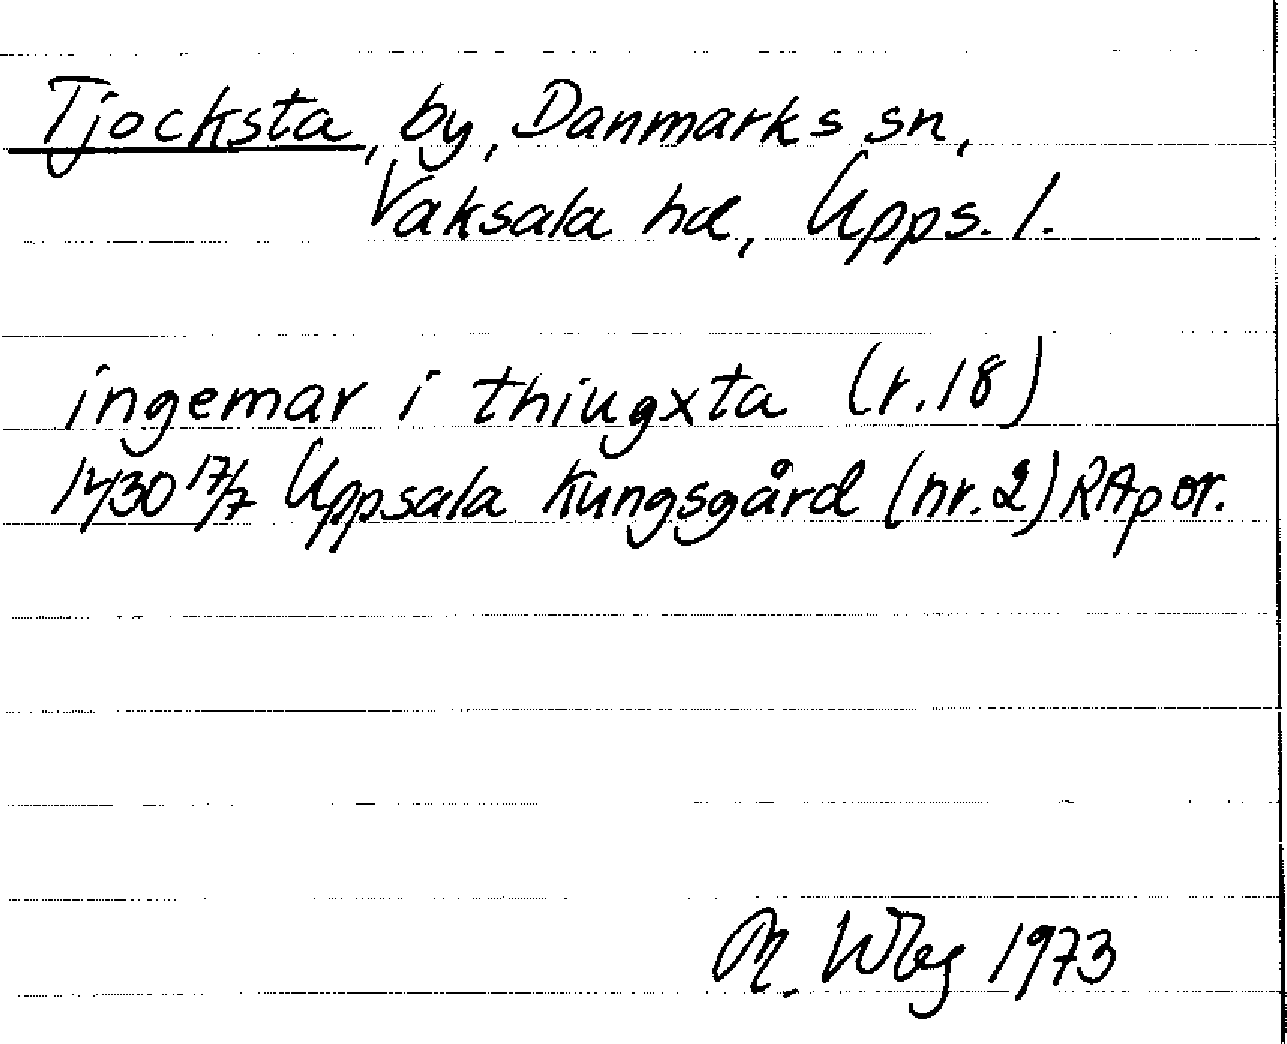 Tjocksta, by, Danmarks sn,
Vaksala hd, Upps. l.
ingemar i thiugxta (r.18)
1430 17/7 Uppsala Kungsgård (nr.2) RAp or.
M. Wbg 1973